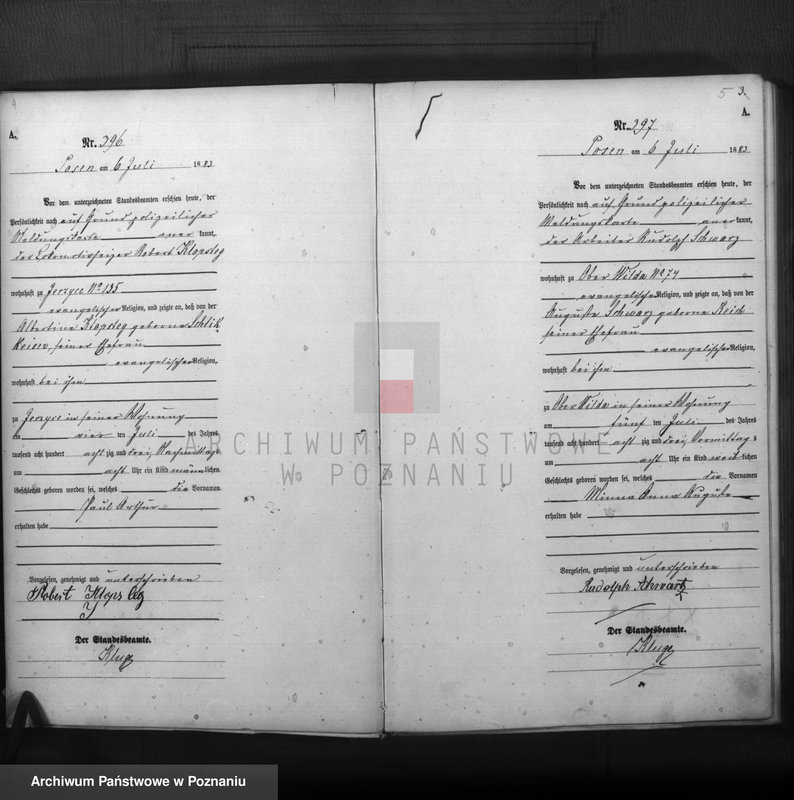 4
A.
Nr. 396
Posen am 6 Juli 1883
Vor dem unterzeichneten Standesbeamten erschien heute, der
Persönlichkeit nach auf Grund polizeilicher
Meldungskarte aner kannt,
der Lokomotivheizer Robert Klopsteg
wohnhaft zu Jerzyce No 135
evangelischer Religion, und zeigte an, daß von der
Albertine Klopsteg geborene
seiner Ehefrau
evangelischer Religion,
wohnhaft bei ihm
zu Jerzyce in seiner Wohnung
am vier ten Juli des Jahres
tausend acht hundert acht zig und drei, Nachmittags
um acht Uhr ein Kind männ lichen
Geschlechts geboren worden sei, welches die Vornamen
Paul Arthur
erhalten habe
Vorgelesen, genehmigt und unterschrieben
Robert Klopsteg
Der Standesbeamte.
Kluge
5 3.
A.
Nr. 397
Posen am 6 Juli 1883
Vor dem unterzeichneten Standesbeamten erschien heute, der
Persönlichkeit nach auf Grund polizeilicher
Meldungskarte aner kannt,
der Arbeiter Rudolph Schwarz
wohnhaft zu Ober Wilda No 77
evangelischer Religion, und zeigte an, daß von der
Auguste Schwarz geborene Reich
seiner Ehefrau
evangelischer Religion,
wohnhaft bei ihm
zu Ober Wilda in seiner Wohnung
am fünf ten Juli des Jahres
tausend acht hundert acht zig und drei, Vormittag s
um acht Uhr ein Kind weib lichen
Geschlechts geboren worden sei, welches die Vornamen
Minna Anna Auguste
erhalten habe
Vorgelesen, genehmigt und unterschrieben
Rudolph Schwartz
Der Standesbeamte.
Kluge
ARCHIWUM PAŃSTWOWE
W POZNANIU
Archiwum Państwowe w Poznaniu